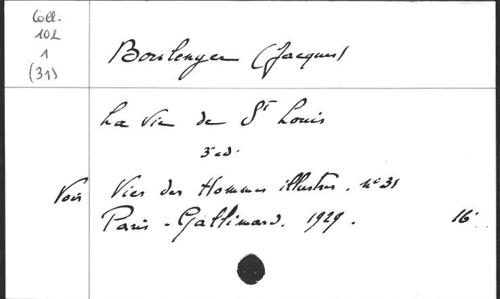 Coll.
102
1
(31)
Boulenger (Jacques)
La Vie de St Louis
3e ed.
Voir Vies des Hommes illustres. nº 31
Paris - Gallimard. 1929.
16º